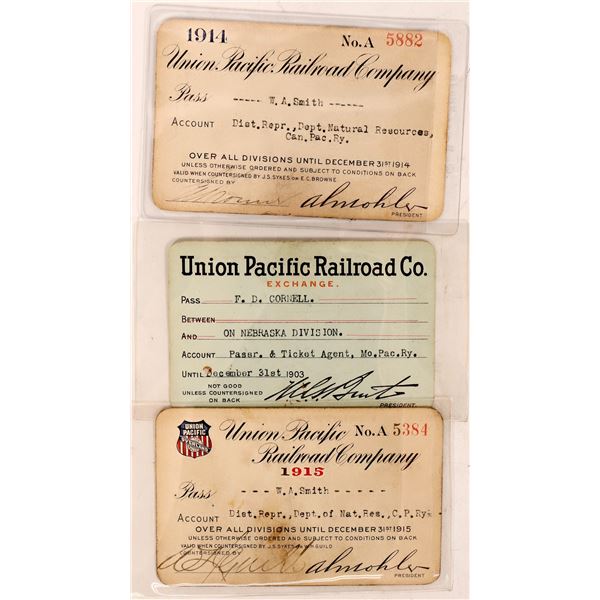 1914 No. A 5882
Union Pacific Railroad Company
Pass ----- W.A.Smith ------
Account Dist.Repr.,Dept.Natural Resources,
Can.Pac.Ry.
OVER ALL DIVISIONS UNTIL DECEMBER 31ST 1914
UNLESS OTHERWISE ORDERED AND SUBJECT TO CONDITIONS ON BACK
VALID WHEN COUNTERSIGNED BY J.S. SYKES OR E.C. BROWNE
COUNTERSIGNED BY
almohler
PRESIDENT
Union Pacific Railroad Co.
EXCHANGE.
PASS F. D. CORNELL.
BETWEEN
AND ON NEBRASKA DIVISION.
ACCOUNT Passr. & Ticket Agent, Mo.Pac.Ry.
UNTIL December 31st 1903
NOT GOOD
UNLESS COUNTERSIGNED
ON BACK
PRESIDENT.
UNION
PACIFIC
Union Pacific No. A 5384
Railroad Company
1915
Pass ---- W.A.Smith -----
Account Dist.Repr.,Dept.of Nat.Res.,C.P.Ry.
OVER ALL DIVISIONS UNTIL DECEMBER 31ST 1915
UNLESS OTHERWISE ORDERED AND SUBJECT TO CONDITIONS ON BACK
VALID WHEN COUNTERSIGNED BY J.S. SYKES OR GUILD
COUNTERSIGNED BY
almohler
PRESIDENT